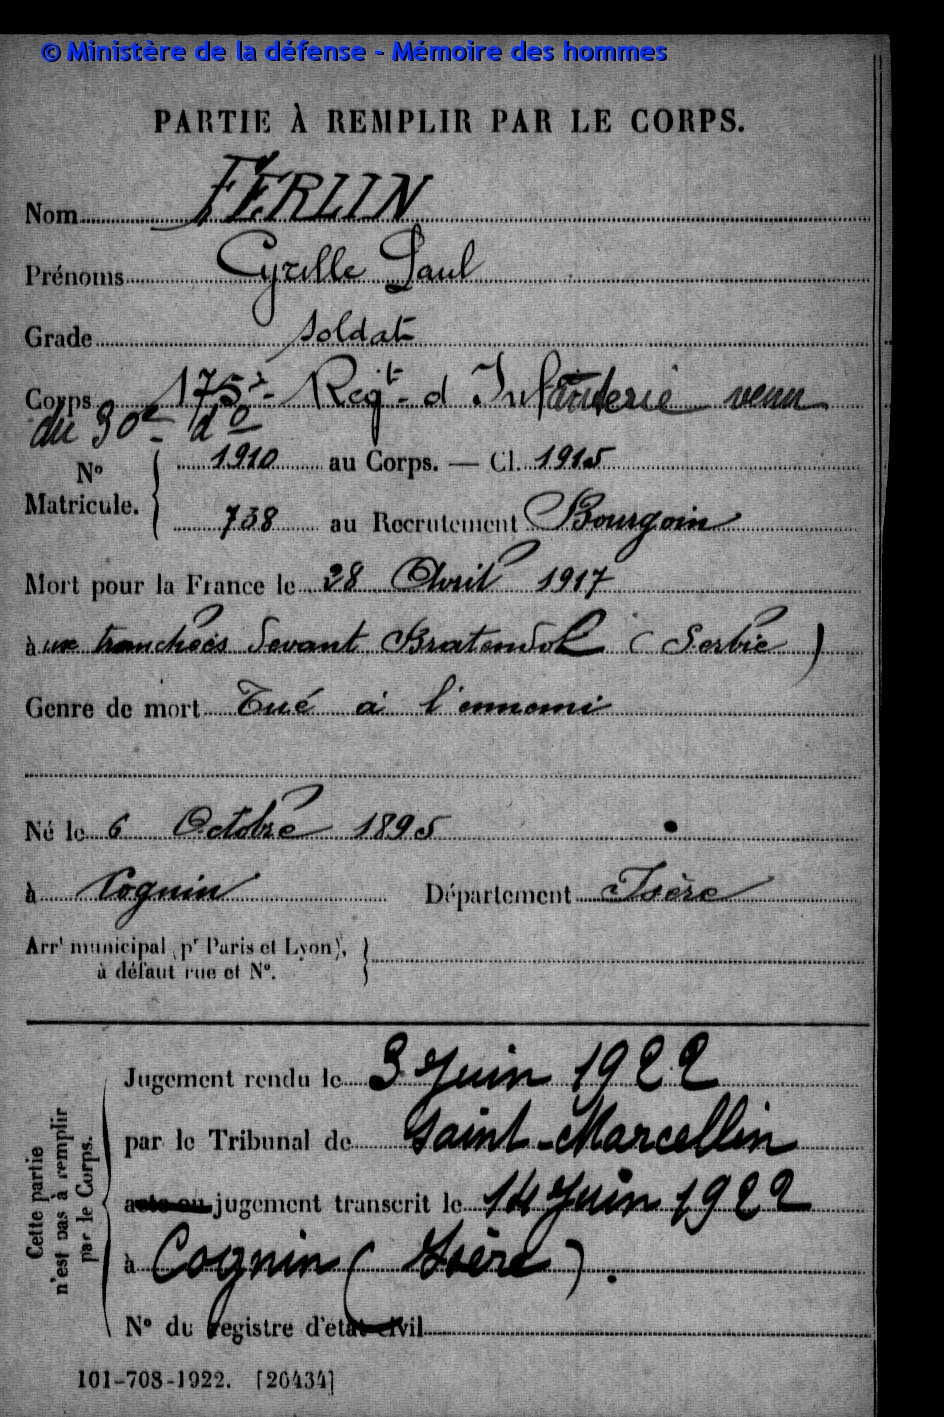 © Ministère de la défense - Mémoire des hommes
PARTIE À REMPLIR PAR LE CORPS.
Nom FERLIN
Prénoms Cyrille Paul
Grade soldat
Corps 175e Regt d Infanterie venu
du 30e do
No Matricule. { 1910 au Corps. — Cl. 1915
738 au Recrutement Bourgoin
Mort pour la France le 28 Avril 1917
à ux tranchées devant Bratendol (Serbie)
Genre de mort Tué à l'ennemi
Né le 6 Octobre 1895
à Cognin Département Isère
Arrt municipal (pr Paris et Lyon),
à défaut rue et No.
Cette partie
n'est pas à remplir
par le Corps.
Jugement rendu le 3 Juin 1922
par le Tribunal de Saint-Marcellin
acte ou jugement transcrit le 14 Juin 1922
à Cognin (Isère).
No du registre d'état civil
101-708-1922. [26434]